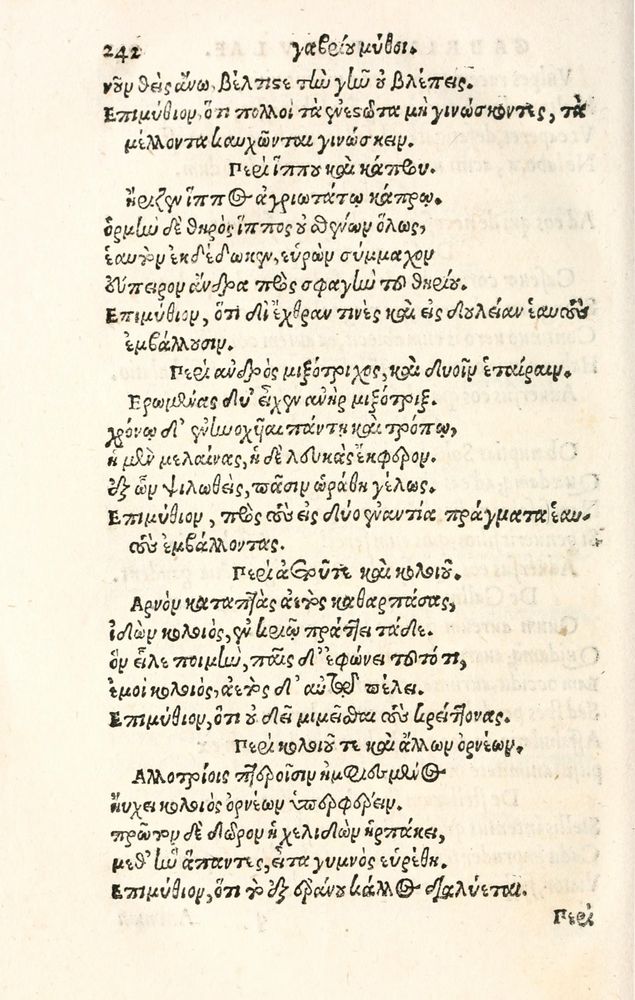 242 γαβρίου μύθοι.
νοῦν θεὶς ἄνω, βέλτιστε τὴν γῆν οὐ βλέπεις.
Επιμύθιον, ὅτι πολλοὶ τὰ ἐνεστῶτα μὴ γινώσκοντες, τὰ
μέλλοντα καυχῶνται γινώσκειν.
Περὶ ἵππου καὶ κάπρου.
Ηριζεν ἵππος ἀγριωτάτῳ κάπρῳ.
ὁρμὴν δὲ θηρὸς ἵππος οὐ σθένων ὅλως,
ἑαυτὸν ἐκδέδωκεν, εὑρὼν σύμμαχον
ἔμπειρον ἄνδρα πρὸς σφαγὴν τοῦ θηρίου.
Επιμύθιον, ὅτι δι' ἔχθραν τινὲς καὶ εἰς δουλείαν ἑαυτοὺς
ἐμβάλλουσιν.
Περὶ ἀνδρὸς μιξότριχος, καὶ δυοῖν ἑταίραιν.
Ερωμένας δύ' εἶχεν ἀνὴρ μιξότριξ.
χρόνῳ δ' ἐνωχεῖται πάντη καὶ τρόπῳ,
ἡ μὲν μελαίνας, ἡ δὲ λευκὰς ἔκφερον.
ἐξ ὧν ψιλωθεὶς, πᾶσιν ὡράθη γέλως.
Επιμύθιον, πρὸς τοὺς εἰς δύο ἐναντία πράγματα ἑαυ-
τοὺς ἐμβάλλοντας.
Περὶ ἀετοῦ τε καὶ κολοιοῦ.
Αρνὸν καταπτὰς ἀετὸς καθαρπάσας,
ἰδὼν κολοιὸς, ἐν κριῷ πράττει τάδε.
ὃν εἷλε ποιμὴν, παῖς δ' ἐφώνει τοῦτό τι,
ἐμοὶ κολοιὸς, ἀετὸς δ' αὑτῷ πέλει.
Επιμύθιον, ὅτι οὐ δεῖ μιμεῖσθαι τοὺς κρείττονας.
Περὶ κολοιοῦ τε καὶ ἄλλων ὀρνέων.
Αλλοτρίοις πτεροῖσιν ἠμφιεσμένος
ηὔχει κολοιὸς ὀρνέων ὑπερφέρειν.
πρῶτον δὲ δῶρον ἡ χελιδὼν ἥρπακει,
μεθ' ἣν ἅπαντες, εἶτα γυμνὸς εὑρέθη.
Επιμύθιον, ὅτι τὸ ἐξ ἐράνου κάλλος διαλύεται.
Περὶ